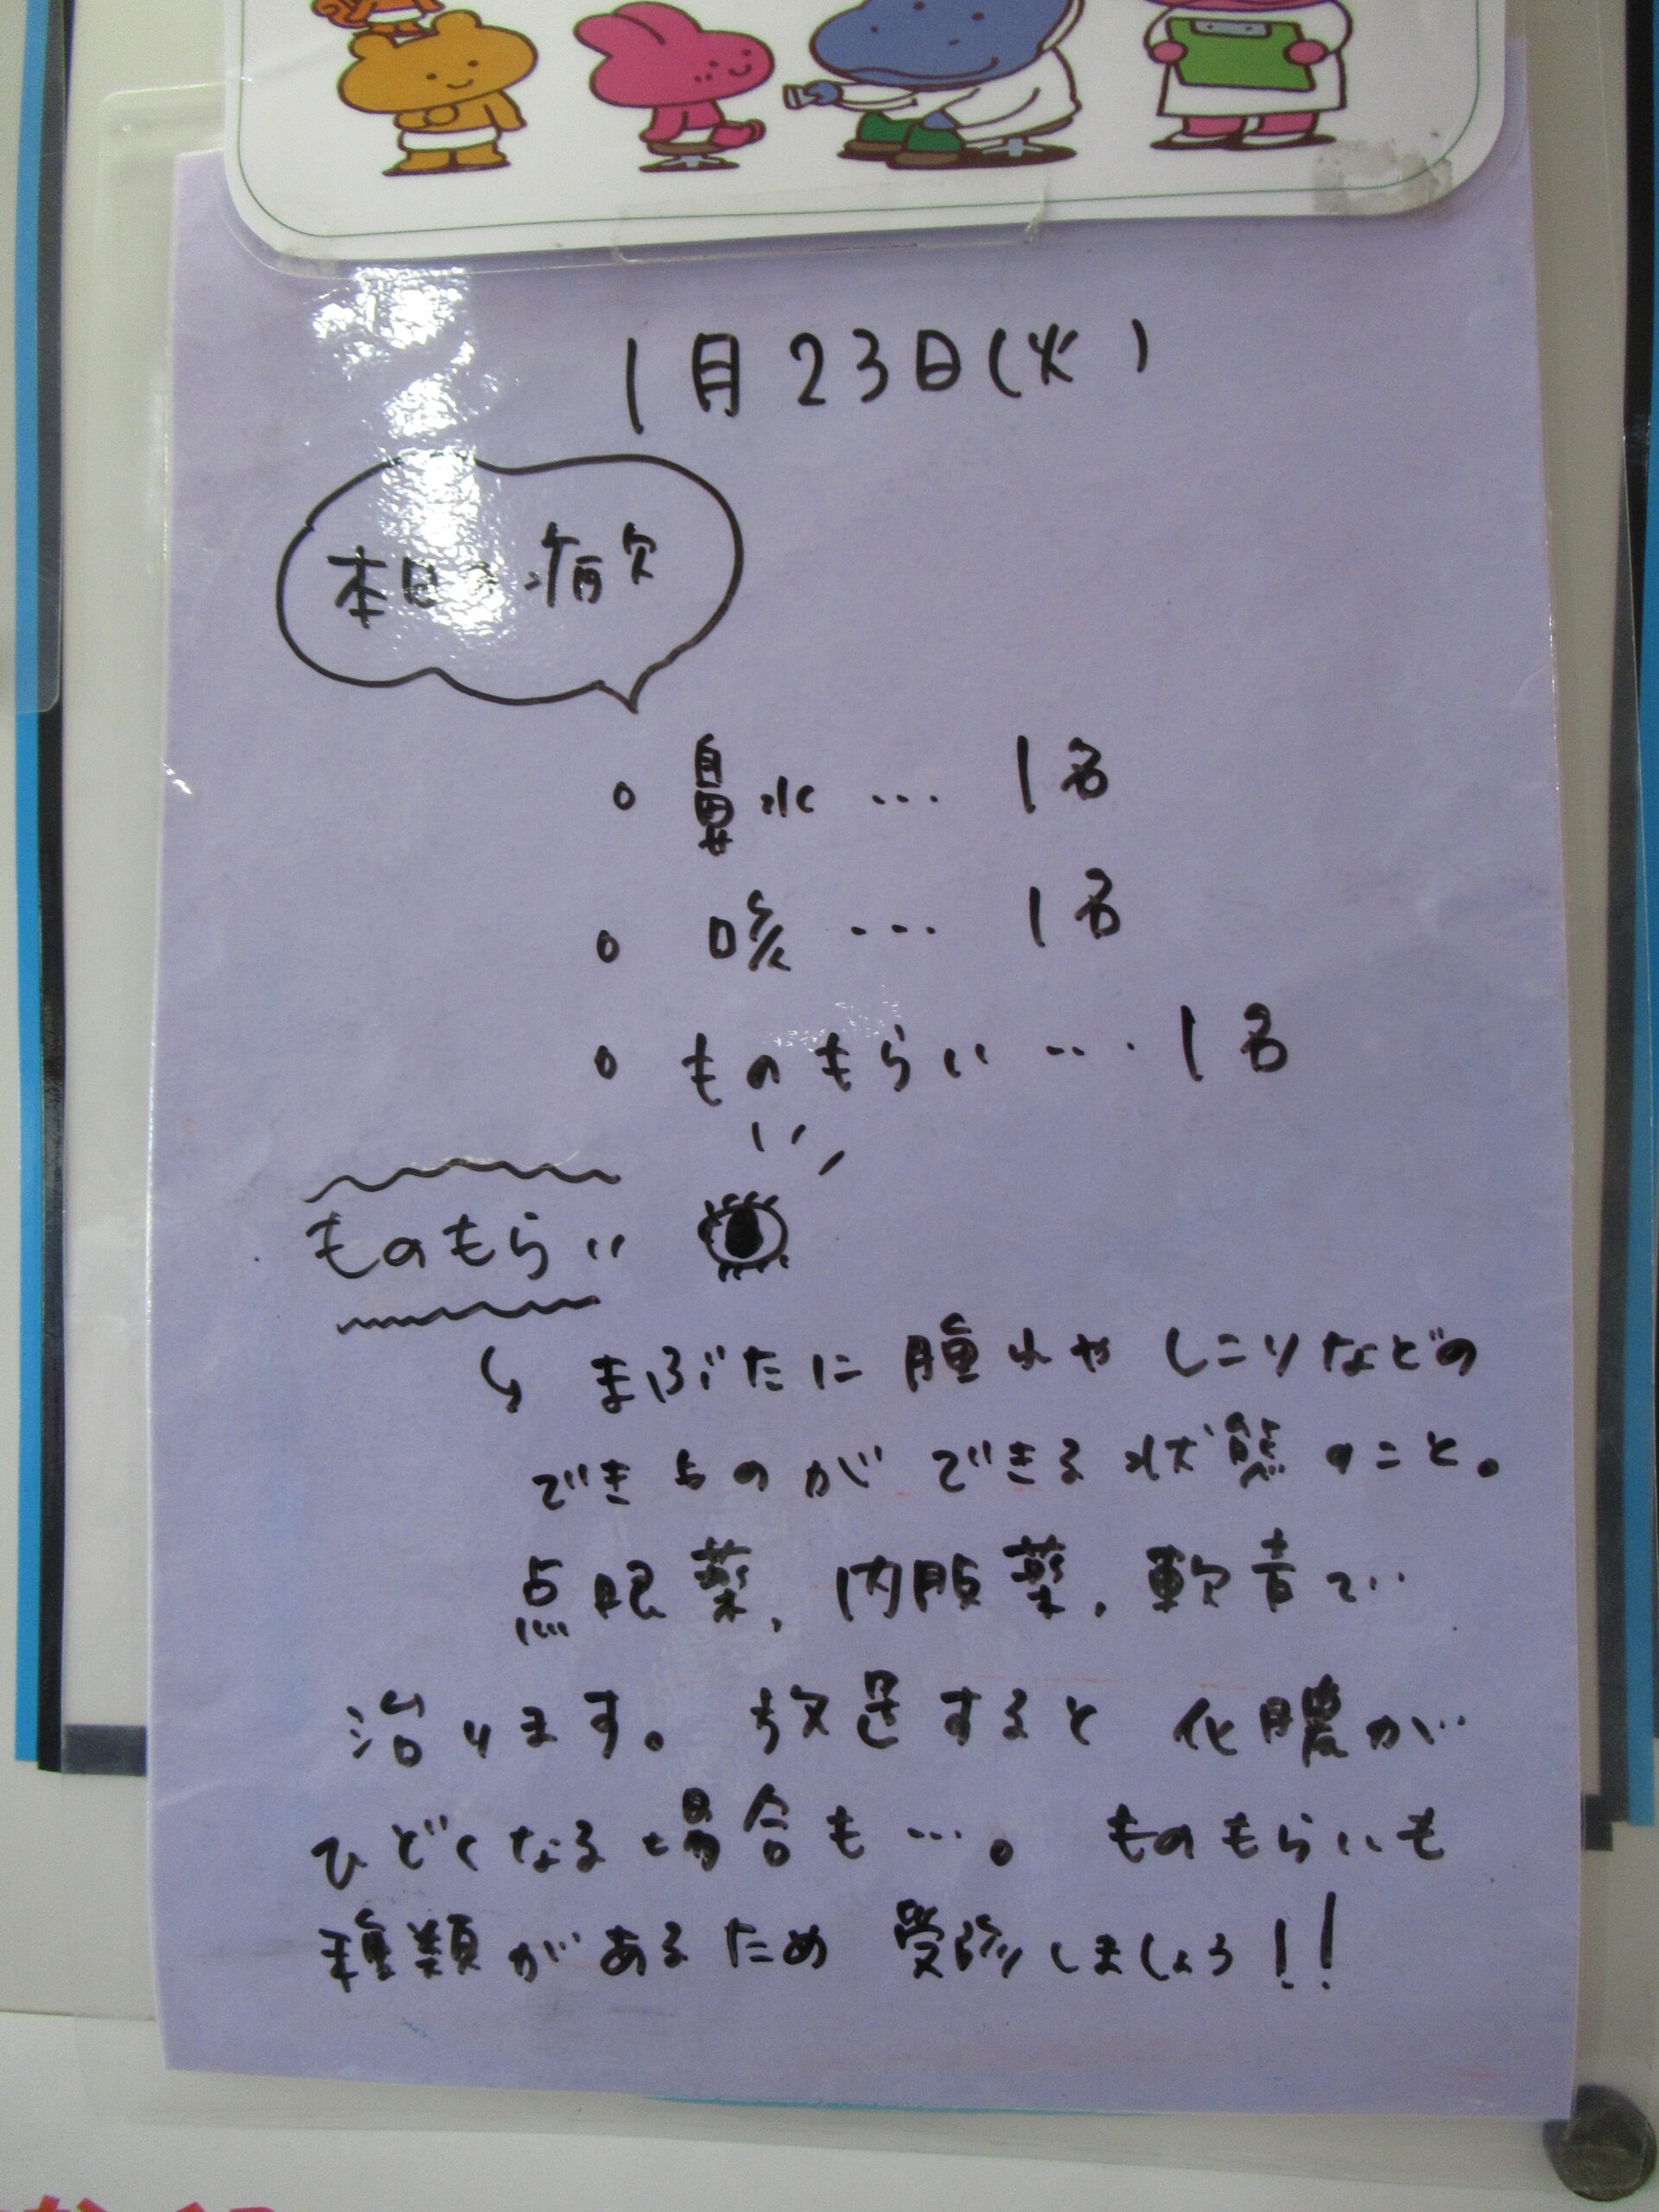 1月23日(火)
本日の病欠
○ 鼻水 … 1名
○ 咳 … 1名
○ ものもらい … 1名
ものもらい
↳ まぶたに腫れやしこりなどの
できものができる状態のこと。
点眼薬、内服薬、軟膏で
治ります。放置すると化膿が
ひどくなる場合も…。ものもらいも
種類があるため受診しましょう!!